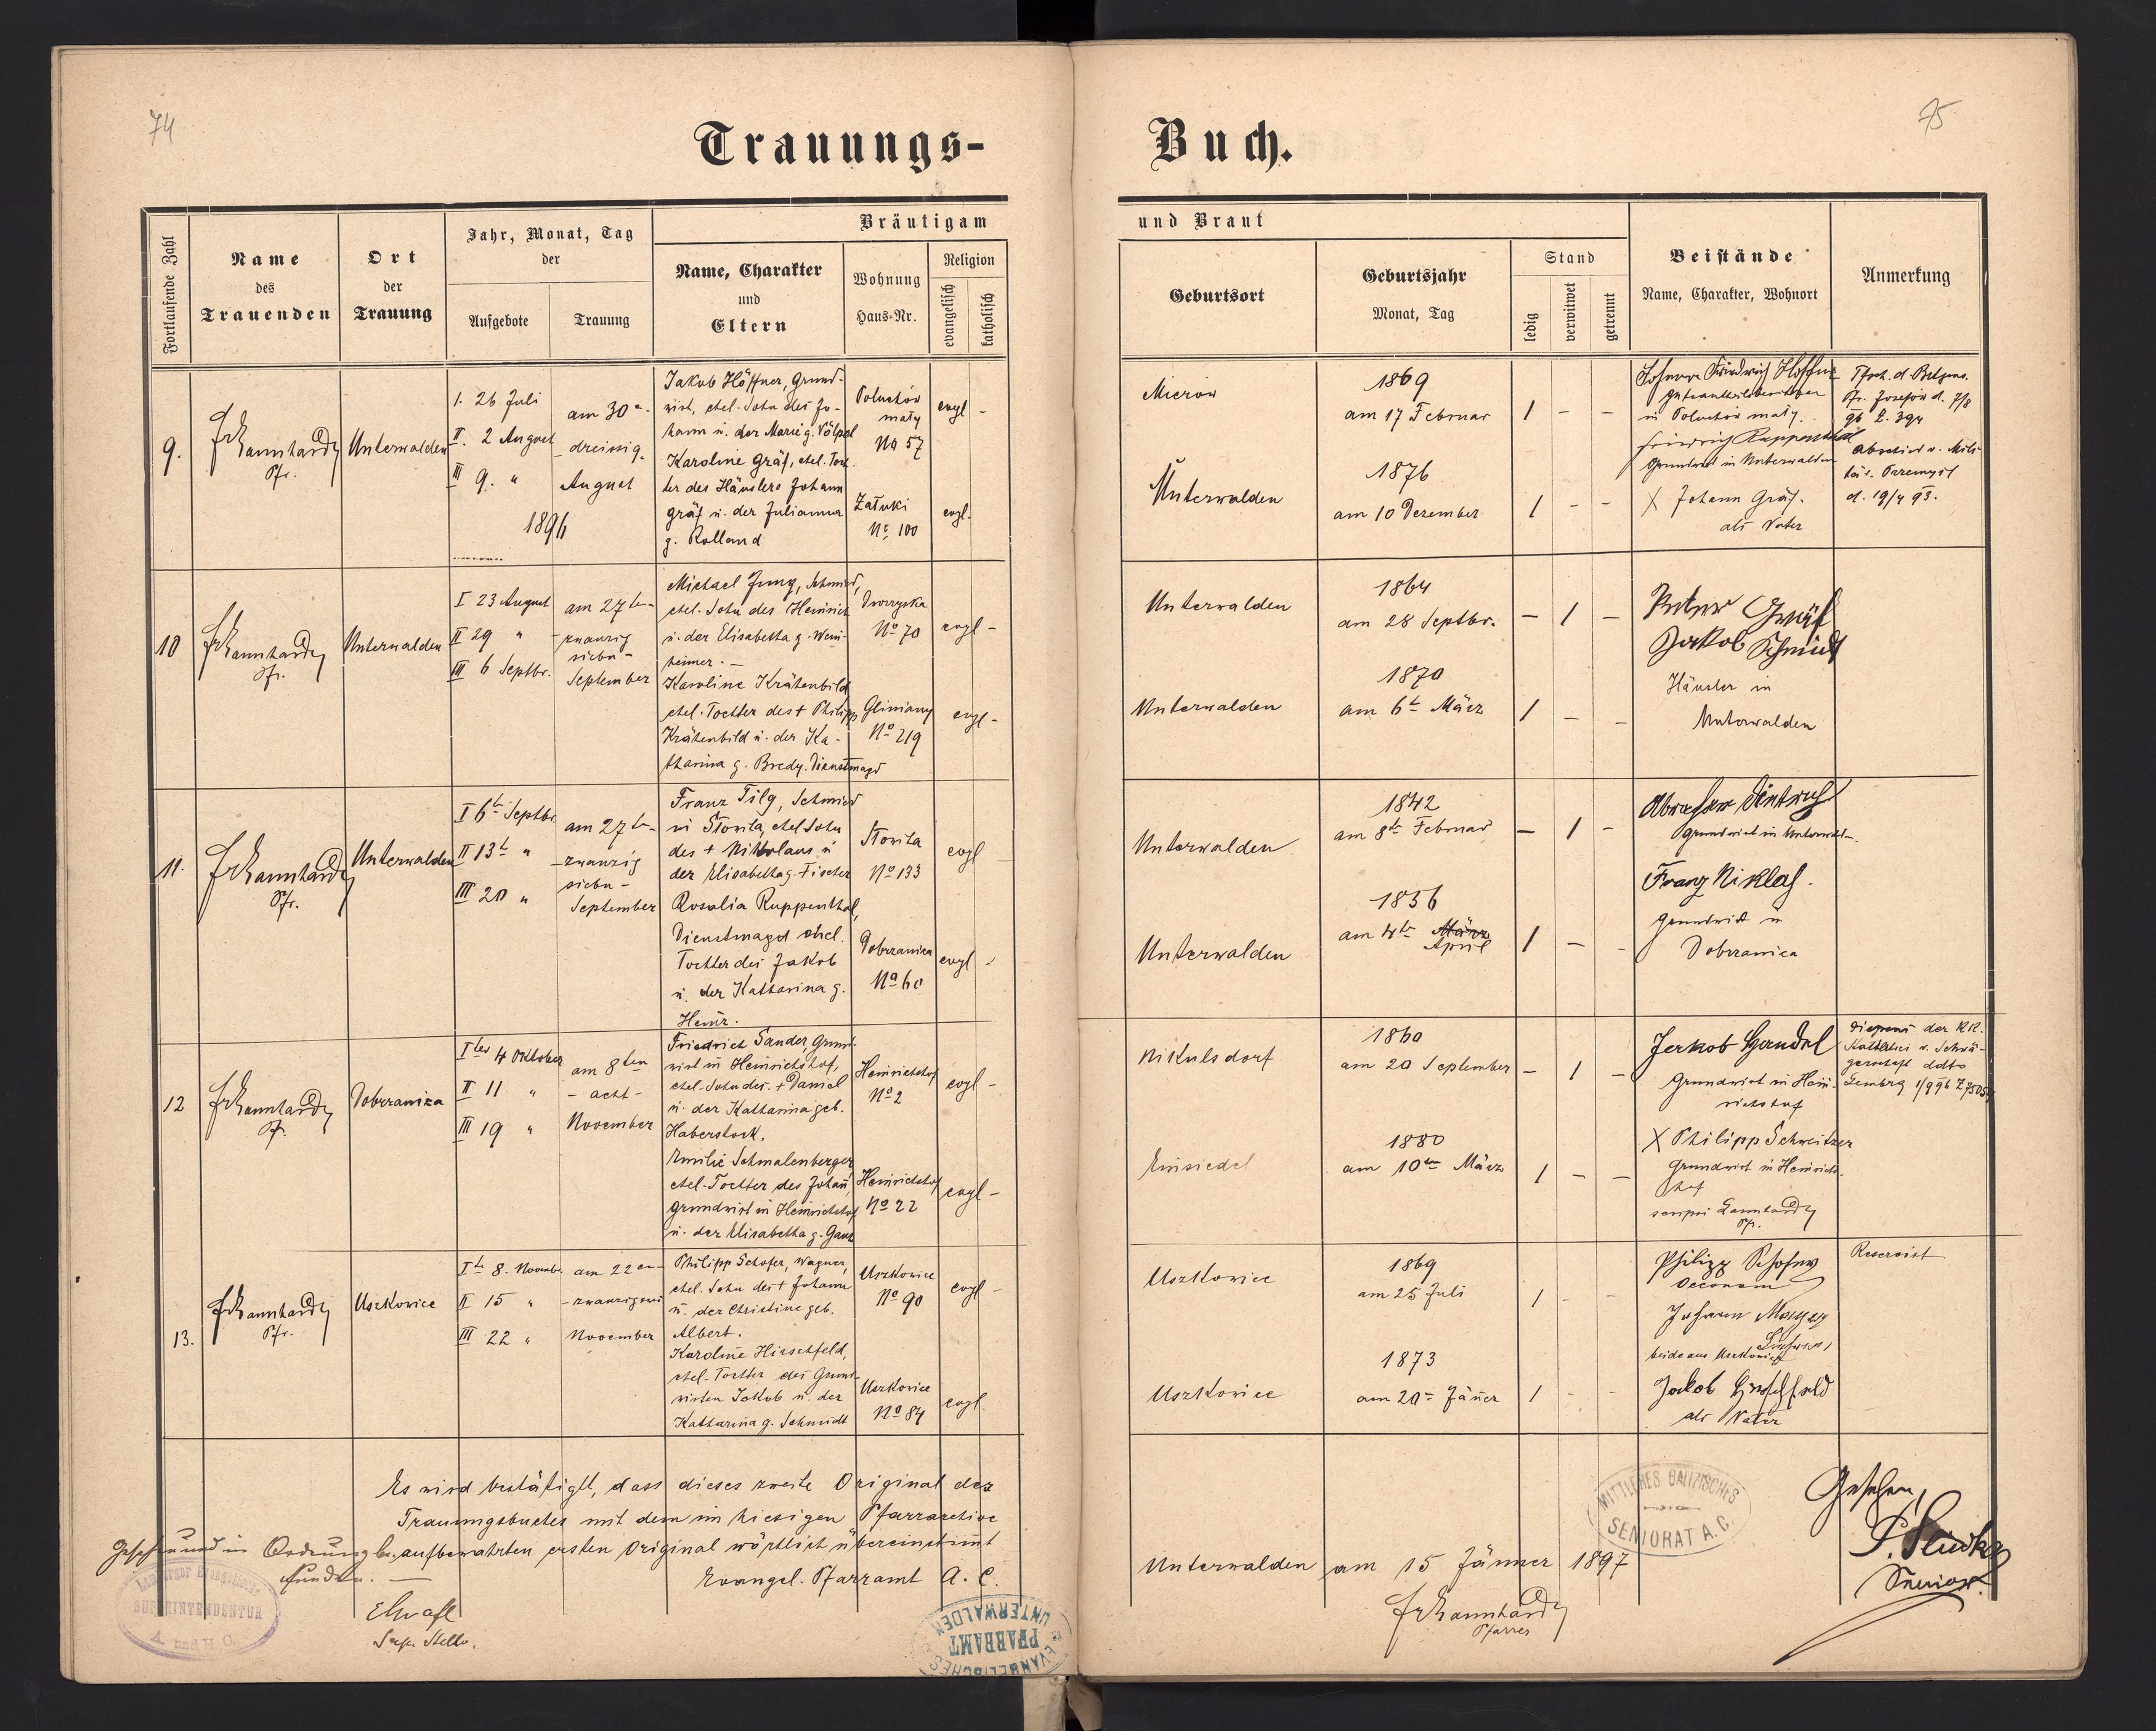 74
75
Trauungs-
Buch.
Fortlaufende Zahl
Name
des
Trauenden
Ort
der
Trauung
Jahr, Monat, Tag
der
Aufgebote
Trauung
Bräutigam
Name, Charakter
und
Eltern
Wohnung
Haus-Nr.
Religion
evangelisch
katholisch
und Braut
Geburtsort
Geburtsjahr
Monat, Tag
Stand
ledig
verwitwet
getrennt
Beistände
Name, Charakter, Wohnort
Anmerkung
9.
Pfr.
Unterwalden
I. 26 Juli
II. 2 August
III 9. "
am 30
dreissig
August
1896
Jakob Höffner, Grund-
wirt, ehel. Sohn des Jo-
hann u. der Marie g. Völpel
Karoline Gräf, ehel. Toch-
ter des Häuslers Johann
Gräf u. der Julianna
g. Rolland
Poluchów
mały
No 57
Załuki
No 100
evgl -
evgl.
Mierow
1869
am 17 Februar
1 - -
Unterwalden
1876
am 10 Dezember
1 - -
Johann Friedrich Höffner
in Poluchów mały.
Friedrich Ruppenthal
Grundwirt in Unterwalden
X Johann Gräf.
als Vater
Abschied v. Mili-
tär. Przemysl
d. 19/4 93.
10
Pfr.
Unterwalden
I 23 August
II 29 "
III 6 Septbr.
am 27ten
zwanzig
sieben-
September
Michael Jung, Schmied,
ehel. Sohn des Heinrich
u. der Elisabetha g. Wein-
heimer. -
Karoline Krätenbild
ehel. Tochter des + Philipp
Krätenbild u. der Ka-
tharina g. Bredy. Dienstmagd
No 70
Gliniany
No 219
evgl -
evgl -
Unterwalden
1864
am 28 Septbr.
- 1 -
Unterwalden
1870
am 6ten März
1 - -
Peter Gräf
Jakob Schmidt
Häusler in
Unterwalden
11.
Pfr.
Unterwalden
I 6t Septbr.
II 13t "
III 20 "
am 27ten
-zwanzig
sieben-
September
Franz Tilg, Schmied
in Slowita, ehel. Sohn
des + Nikolaus u
der Elisabetha g. Fischer
Rosalia Ruppenthal,
Dienstmagd ehel.
Tochter des Jakob
u. der Katharina g.
Heinz.
Slowita
No 133
Dobrzanica
No 60
evgl
evgl -
Unterwalden
1842
am 8ten Februar
- 1 -
Unterwalden
1856
am 4ten März
April
1 - -
Grundwirt in Unterwald-
Franz Niklas.
Grundwirt in
Dobrzanica
12
Pfr.
Dobrzanica
Iter 4 Oktober
II 11 "
III 19 "
am 8ten
- acht -
November
Friedrich Sander, Grund-
wirt in Heinrichshof,
ehel. Sohn des + Daniel
u. der Katharina geb.
Haberstock.
Emilie Schmalenberger
ehel. Tochter des Johañ,
Grundwirt in Heinrichshof
u. der Elisabetha g. Ganz
Heinrichshof
No 2
Heinrichshof
No 22
evgl -
evgl -
Mikulsdorf
1860
am 20 September
- 1 -
Einsiedel
1880
am 10ten März
1 - -
Jakob Handel
Grundwirt in Hein-
richshof
X Philipp Schweitzer
Grundwirt in Heinrichs-
hof
scripsi
Pfr.
Dispens der KK.
Statthalterei v. Schwä-
gerschaft ddto
Lemberg
13.
Pfr.
Uszkowice
It 8. Novembr.
II 15 "
III 22 "
am 22
-zwanzigzwei
November
Philipp Schofer, Wagner,
ehel. Sohn des + Johann
u. der Christine geb.
Albert.
Karoline Hirschfeld,
ehel. Tochter des Grund-
wirten Jakob u. der
Katharina g. Schmidt
Uszkowice
No 90
Uszkowice
No 84
evgl -
evgl.
Uszkowice
1869
am 25 Juli
1 - -
Uszkowice
1873
am 20 Jäner
1 - -
Philipp Schofer
Oeconom
Johann
beide aus Uszkowice
Jakob Hirschfeld
als Vater
Reservist
Es wird bestätigt, dass dieses zweite Original des
Trauungsbuches mit dem im hiesigen Pfarrarchive
aufbewahrten ersten Original wörtlich übereinstimt
Evangel. Pfarramt A. C.
Unterwalden am 15 Jänner 1897
Pfarrer
Gesehen und in Ordnung be-
funden. -
Sup. Stellv.
Lemberger Evangelische
SUPERINTENDENTUR
A. und H. C.
EVANGELISCHES
PFARRAMT
UNTERWALDEN
MITTLERES GALIZISCHES
SENIORAT A. C.
Gesehen,
Senior.